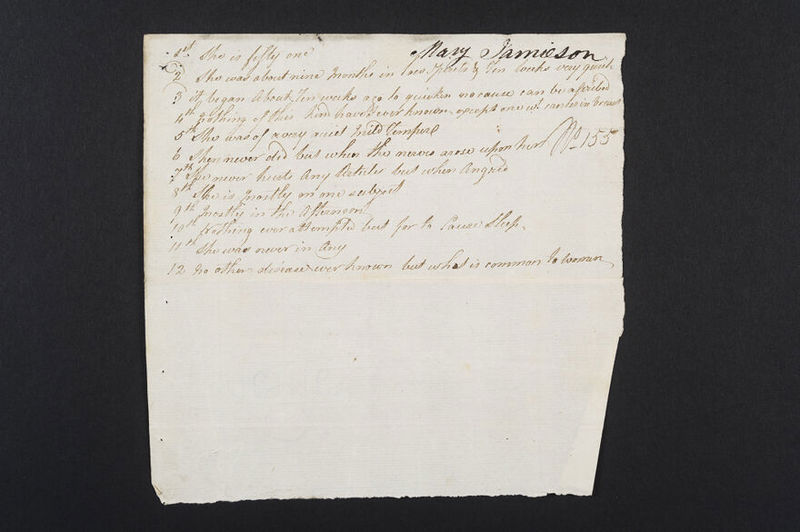 Mary Jamieson
1st She is fifty one
2 She was about nine Months in low Spirits & Ten weeks very quick
3 it began About Ten weeks ago to quicken no cause can be ascribed
4th Nothing of this kind have I ever known except one wt cancer in breast
5th She was of a very quiet Mild Temper
6 She never did but when the nerves arose upon her
No 155
7th She never heeds Any Articles but when Angred
8th She is Mostly on one subject
9th Mostly in the Afternoon
10th Nothing ever attempted but for to Cause Sleep
11th She was never in Any
12 no other disease ever known but what is common to woman